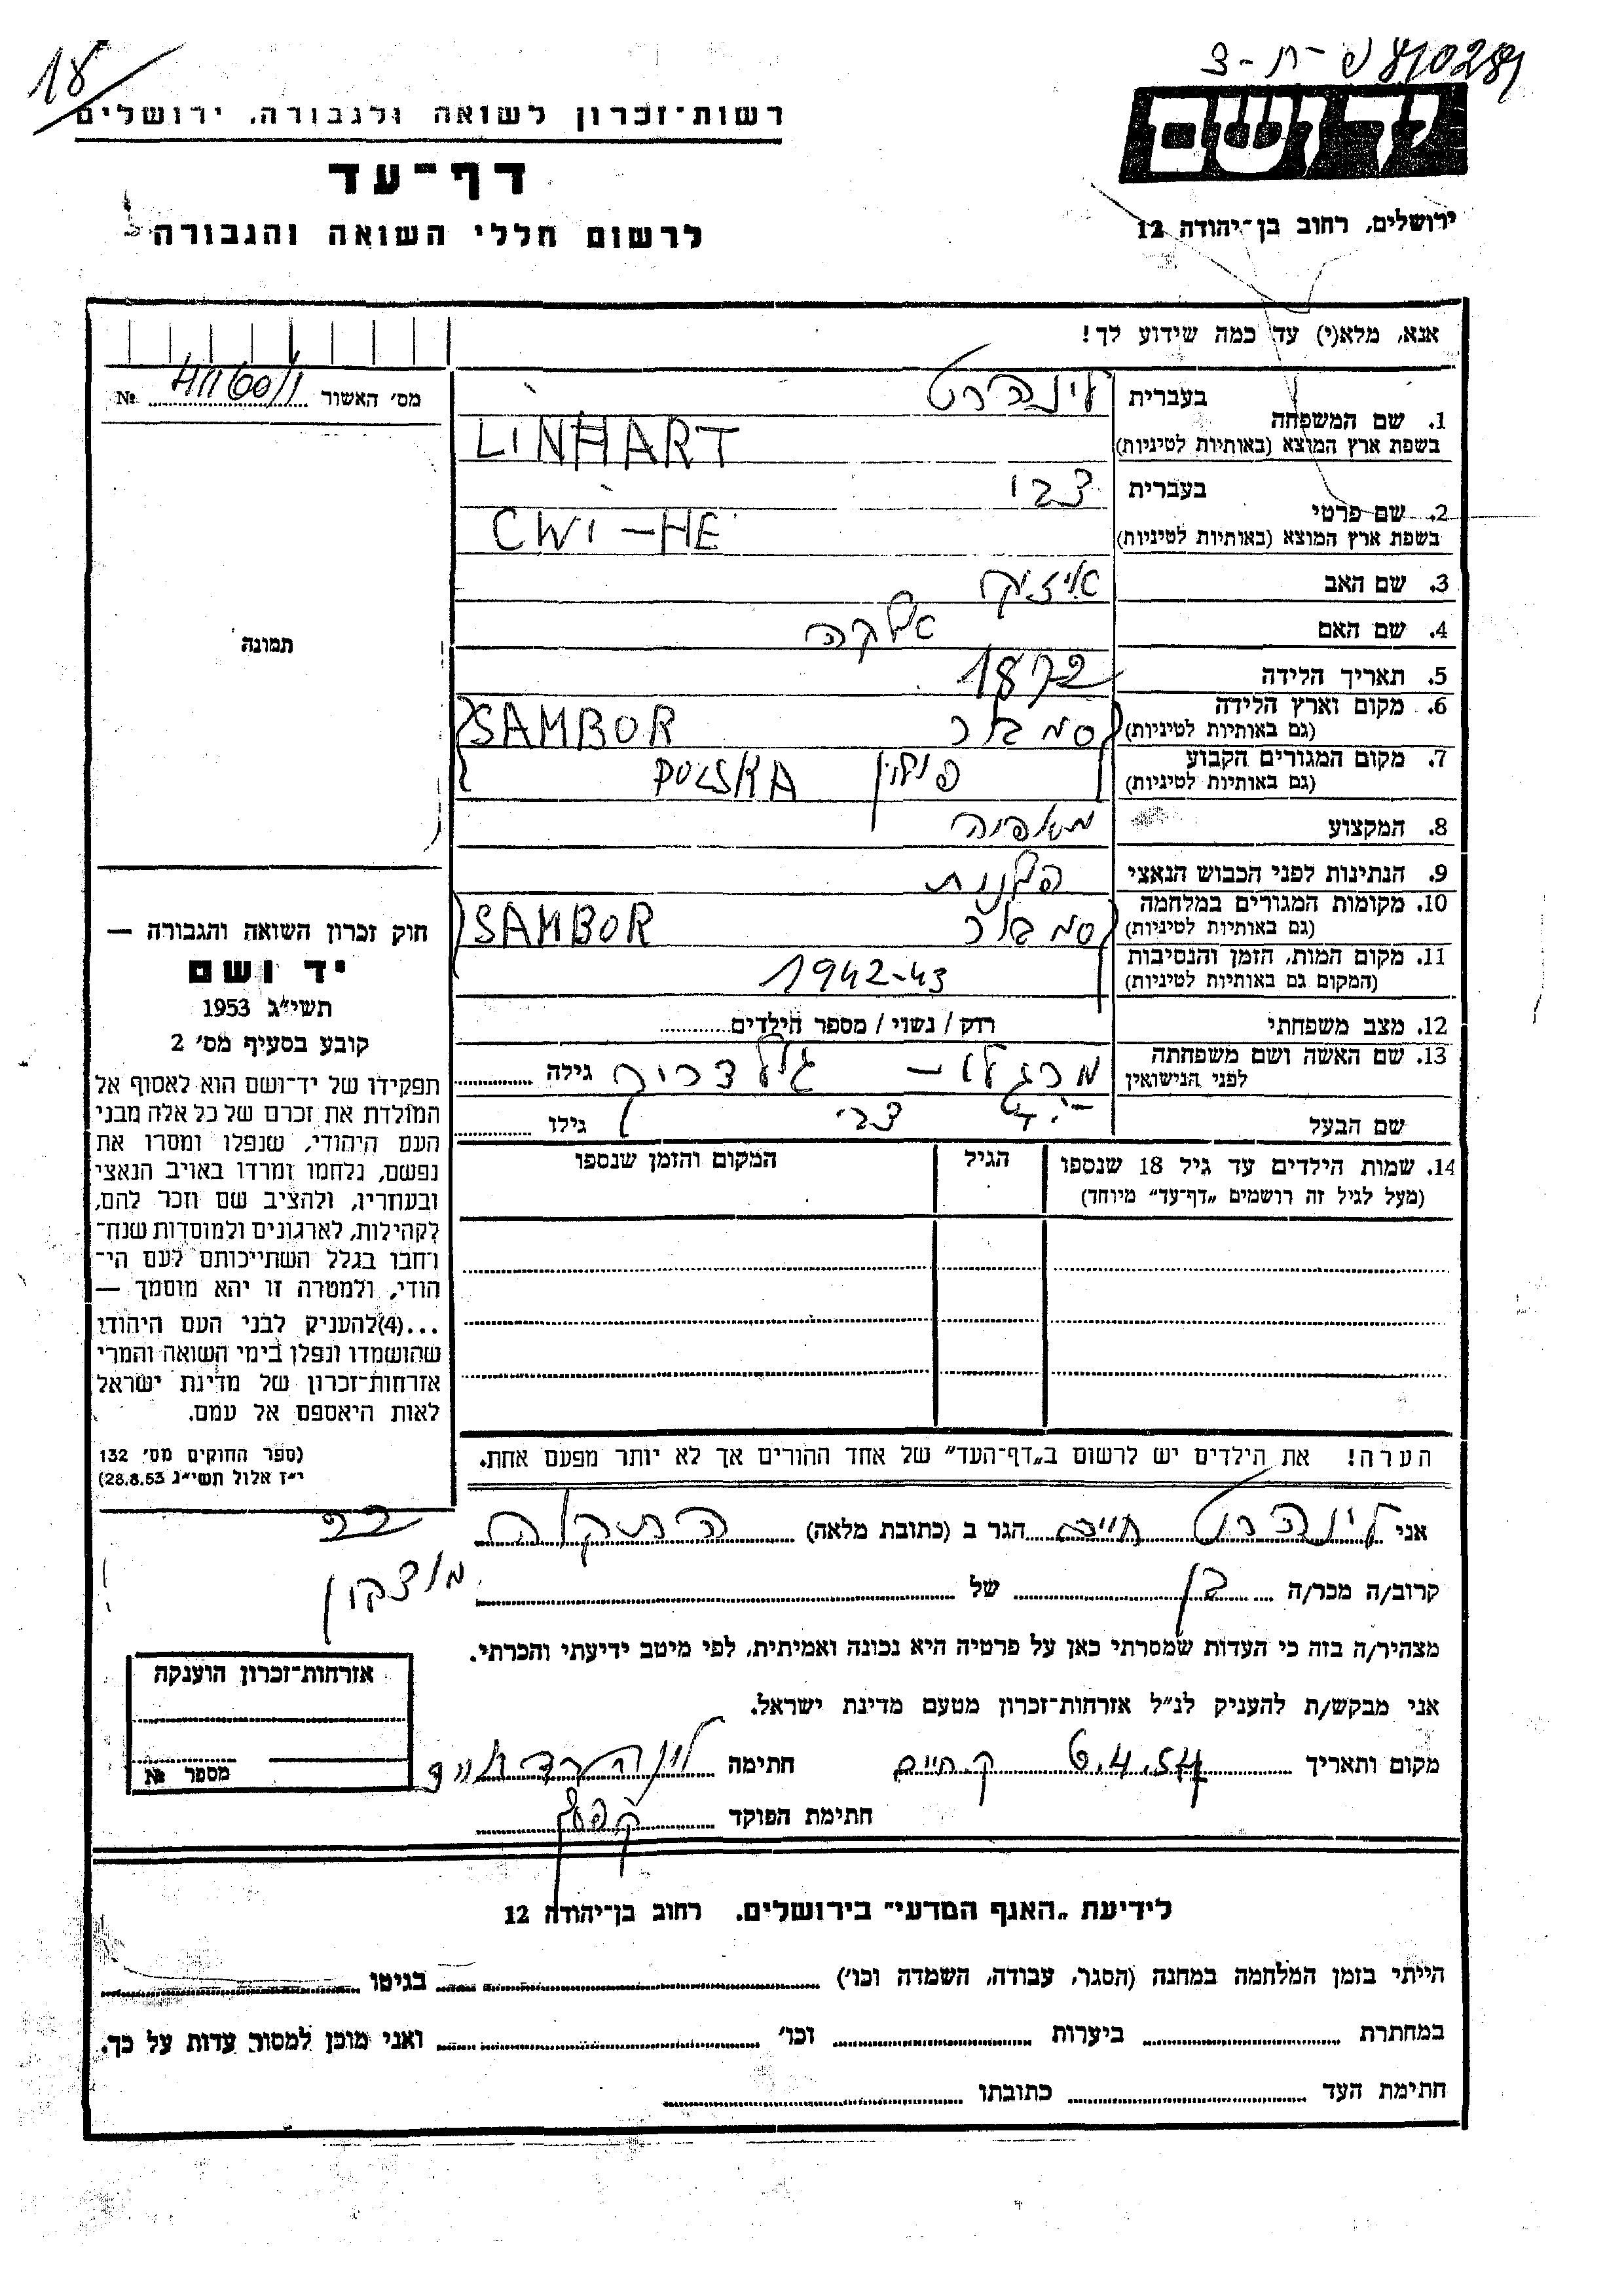 18
רשות־זכרון לשואה ולגבורה, ירושלים
דף־עד
לרשום חללי השואה והגבורה
ידושם
ירושלים, רחוב בן־יהודה 12
אנא, מלא(י) עד כמה שידוע לך!
מס׳ האשור №
תמונה
חוק זכרון השואה והגבורה —
יד ושם
תשי״ג 1953
קובע בסעיף מס׳ 2
תפקידו של יד־ושם הוא לאסוף אל
המולדת את זכרם של כל אלה מבני
העם היהודי, שנפלו ומסרו את
נפשם, נלחמו ומרדו באויב הנאצי
ובעוזריו, ולהציב שם וזכר להם,
לקהילות, לארגונים ולמוסדות שנח־
רחבו בגלל השתייכותם לעם הי־
הודי, ולמטרה זו יהא מוסמך —
...(4)להעניק לבני העם היהודו
שהושמדו ונפלן בימי השואה והמרי
אזרחות־זכרון של מדינת ישראל
לאות היאספם אל עמם.
(ספר החוקים מס׳ 132
י״ז אלול תשי״ג 28.8.53)
1. שם המשפחה
בעברית לינהרט
בשפת ארץ המוצא (באותיות לטיניות) LINHART
2. שם פרטי
בעברית צבי
בשפת ארץ המוצא (באותיות לטיניות) CWI-HE
3. שם האב אייזיק
4. שם האם
5. תאריך הלידה 1872
6. מקום וארץ הלידה
(גם באותיות לטיניות) סמבור SAMBOR
7. מקום המגורים הקבוע
(גם באותיות לטיניות) פולין POLSKA
8. המקצוע
9. הנתינות לפני הכבוש הנאצי פולנית
10. מקומות המגורים במלחמה
(גם באותיות לטיניות) סמבור SAMBOR
11. מקום המות, הזמן והנסיבות
(המקום גם באותיות לטיניות) 1942-43
12. מצב משפחתי רוק / נשוי / מספר הילדים
13. שם האשה ושם משפחתה
לפני הנישואין גילה
שם הבעל צבי גילו
14. שמות הילדים עד גיל 18 שנספו
(מעל לגיל זה רושמים „דף־עד״ מיוחד)
הגיל
המקום והזמן שנספו
הערה! את הילדים יש לרשום ב„דף־העד״ של אחד ההורים אך לא יותר מפעם אחת.
אני לינהרט חיים הגר ב (כתובת מלאה) התקוה 22
מוצקין
קרוב/ה מכר/ה בן של
מצהיר/ה בזה כי העדות שמסרתי כאן על פרטיה היא נכונה ואמיתית, לפי מיטב ידיעתי והכרתי.
אני מבקש/ת להעניק לנ״ל אזרחות־זכרון מטעם מדינת ישראל.
מקום ותאריך 6.4.57 ק. חיים חתימה
חתימת הפוקד
אזרחות־זכרון הוענקה
מספר №
לידיעת „האגף המדעי״ בירושלים. רחוב בן־יהודה 12
הייתי בזמן המלחמה במחנה (הסגר, עבודה, השמדה וכו׳) בגיטו
במחתרת ביערות וכו׳ ואני מוכן למסור עדות על כך.
חתימת העד כתובתו